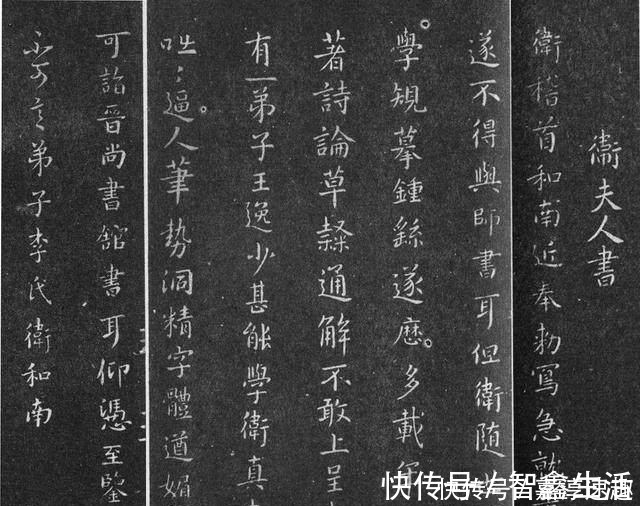 衛夫人書
衛稽首和南近奉勅寫急就
遂不得與師書耳但衛隨世
學規摹鍾繇遂歷多載年
著詩論草隸通解不敢上呈
有一弟子王逸少甚能學衛真
咄咄逼人筆勢洞精字體遒媚
可詣晉尚書館書耳仰憑至鑒
不可言弟子李氏衛和南
快传号
智鑫生活
快传号/智嘉淳速趣